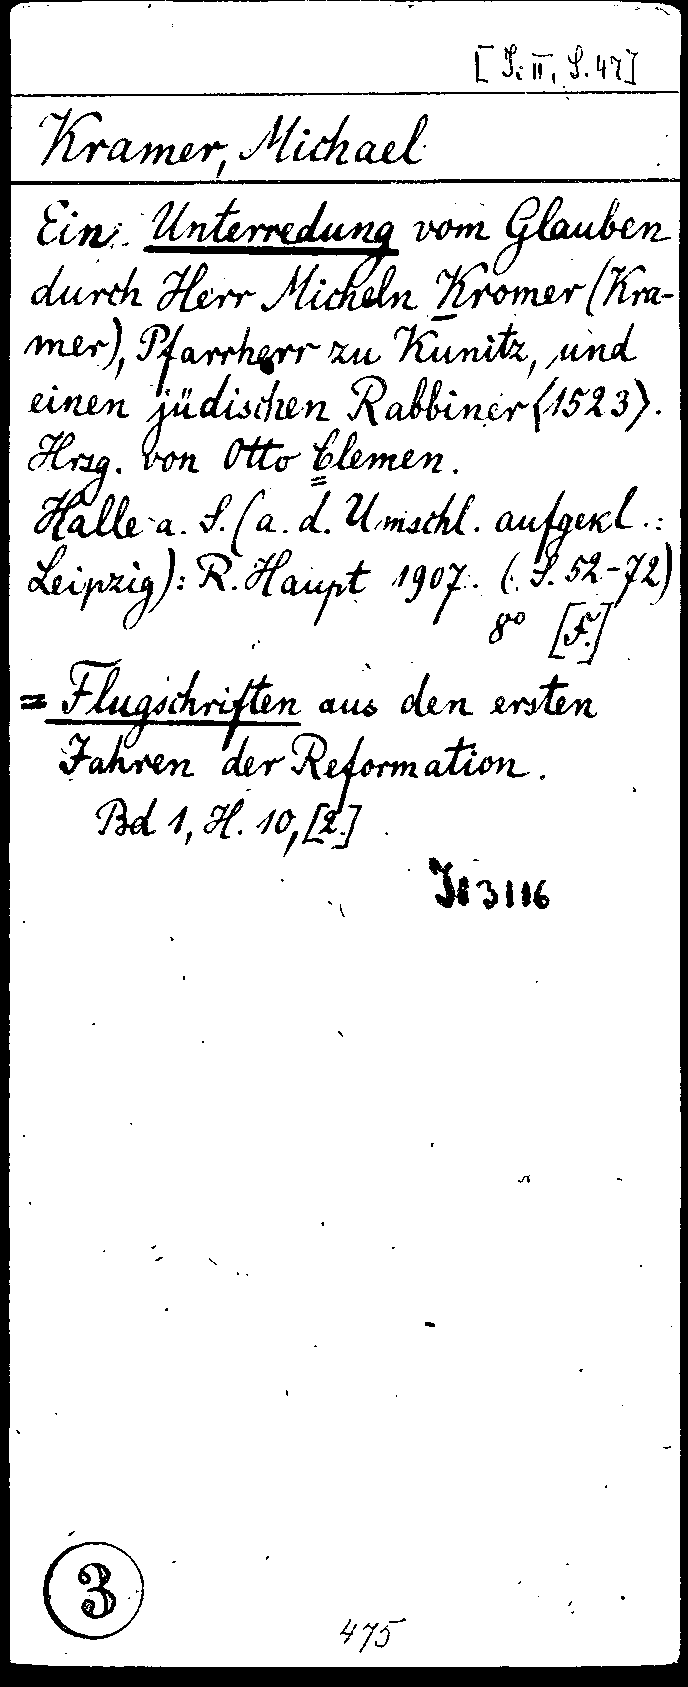 [I. II, S. 47]
Kramer, Michael
Ein Unterredung vom Glauben
durch Herr Micheln Kromer (Kra-
mer), Pfarrherr zu Kunitz, und
einen jüdischen Rabbiner <1523>.
Hrsg. von Otto Clemen.
Halle a. S. (a. d. Umschl. aufgekl.:
Leipzig): R. Haupt 1907. (S. 52-72)
8° [F.]
= Flugschriften aus den ersten
Jahren der Reformation.
Bd 1, H. 10, [2.]
3116
3
475